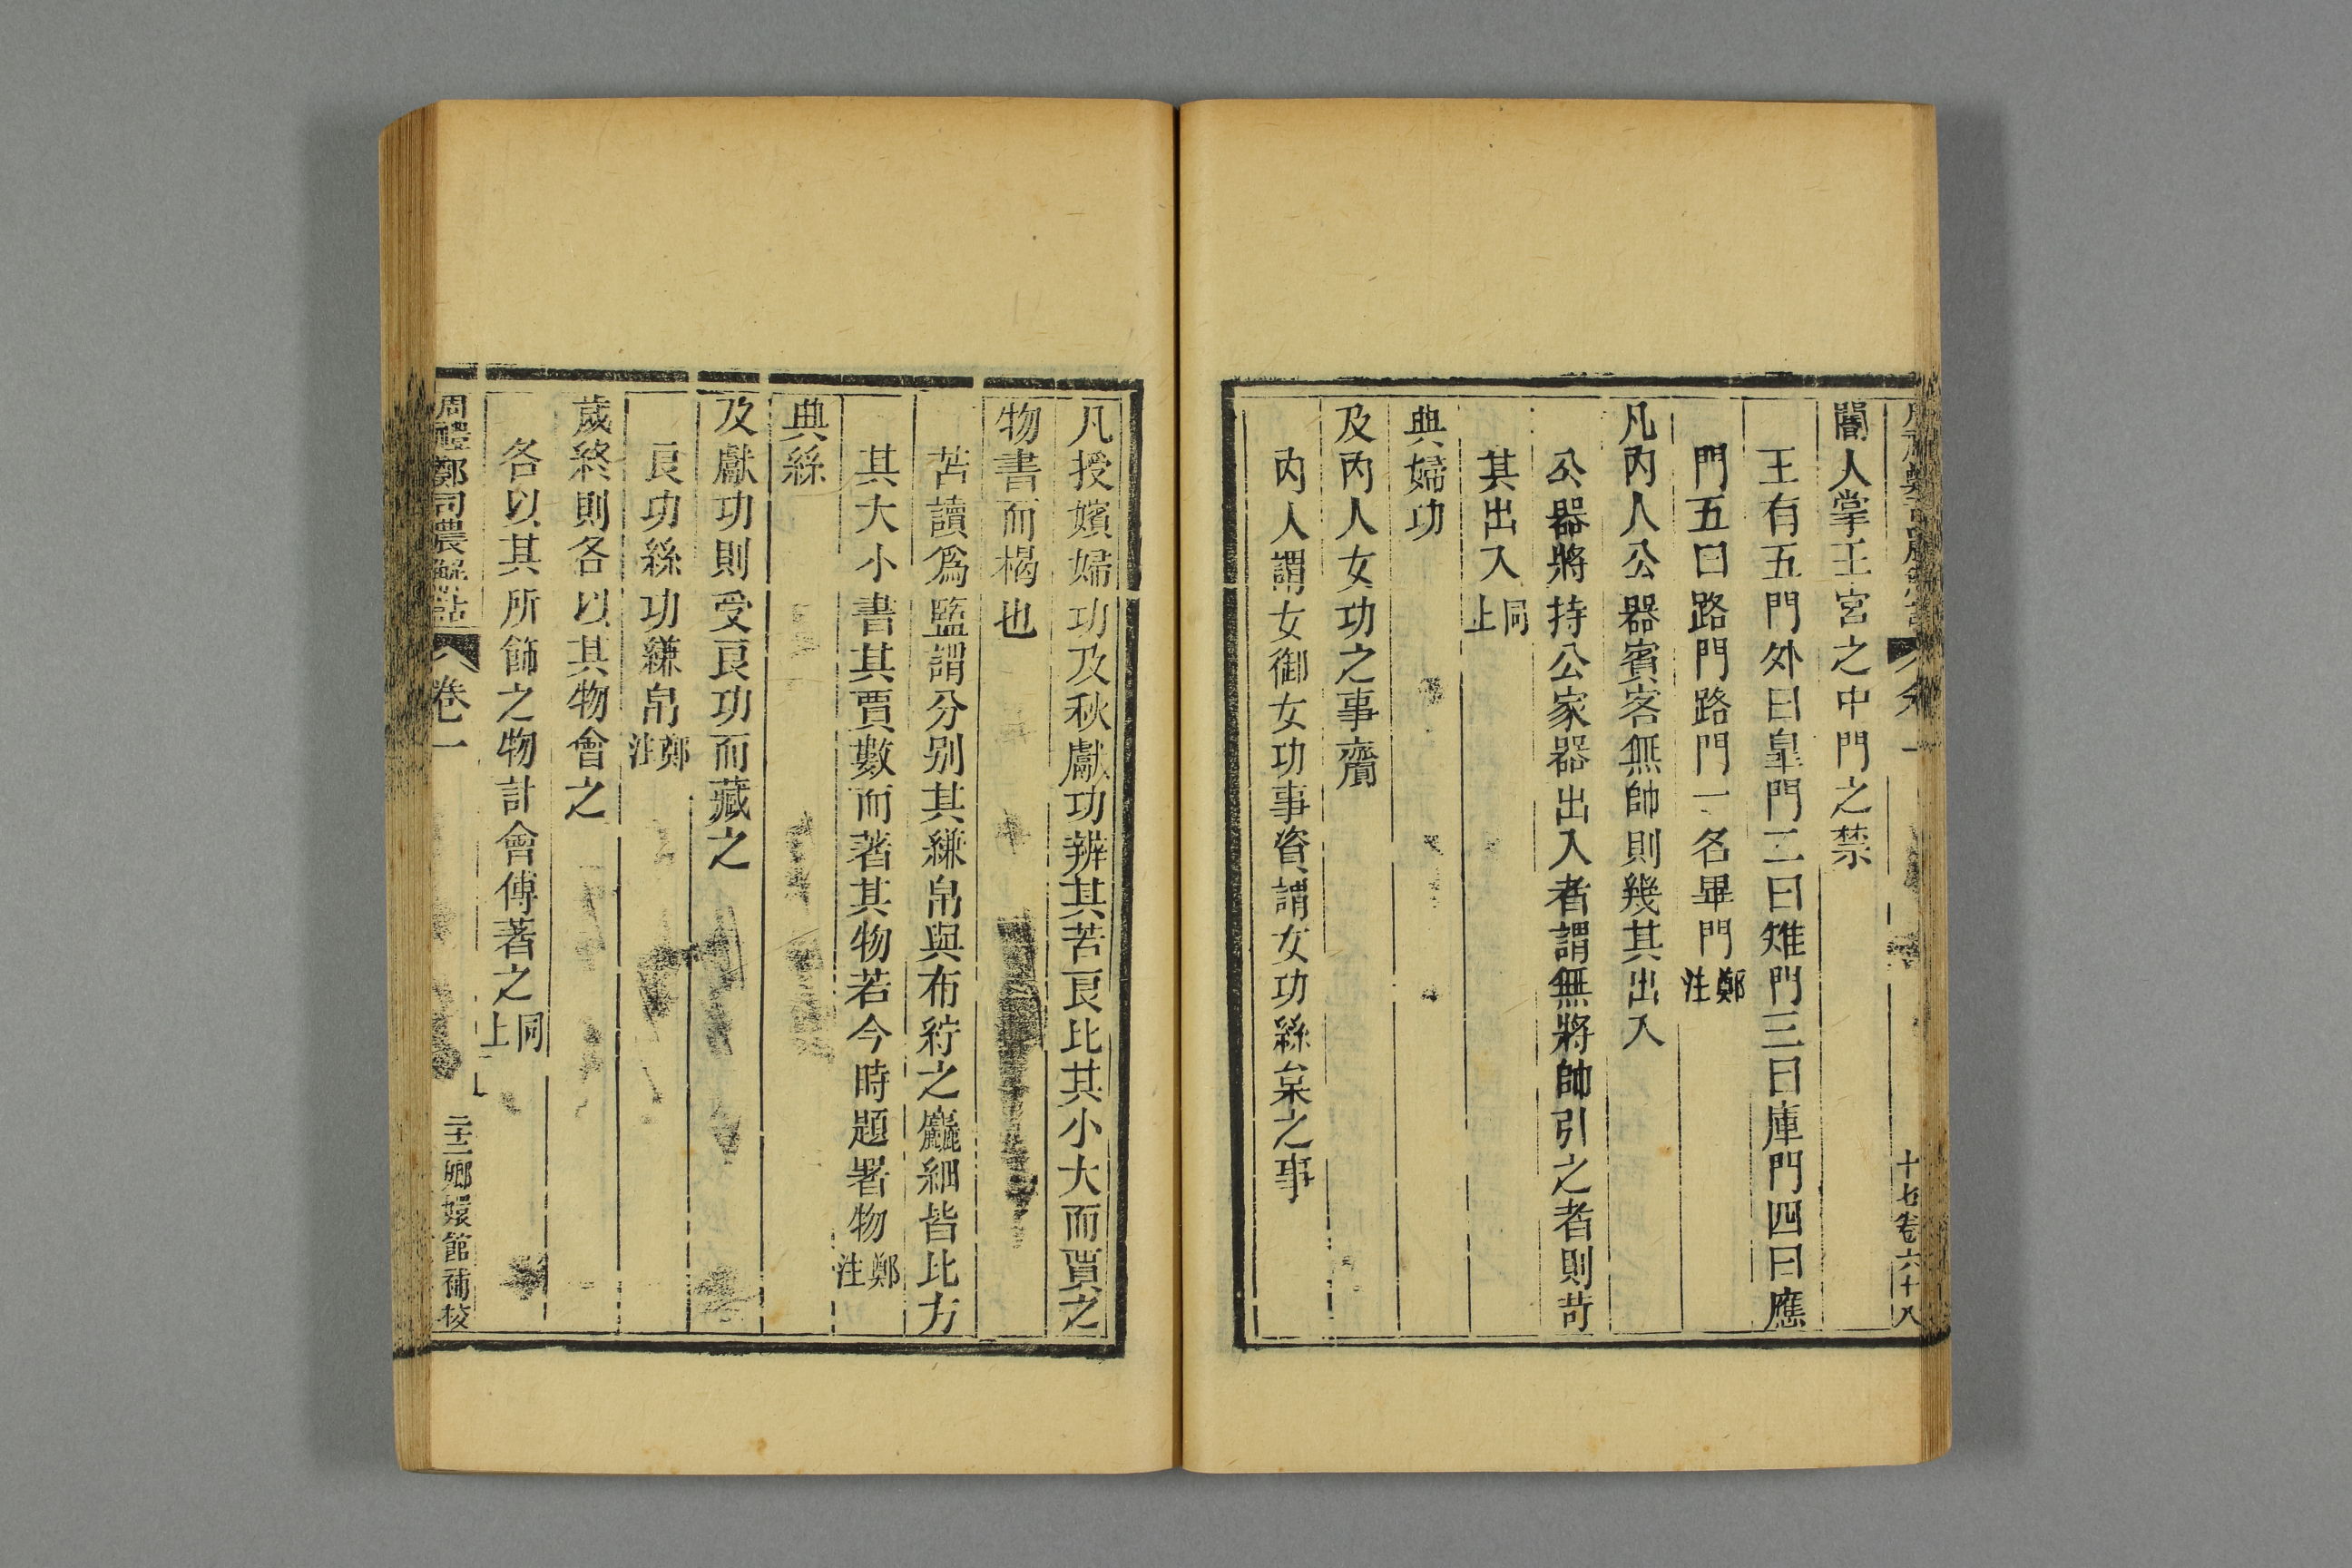 十七卷六十八
閽人掌王宮之中門之禁
王有五門外曰皐門二曰雉門三曰庫門四曰應
門五曰路門路門一名畢門鄭注
凡內人公器賓客無帥則幾其出入
公器將持公家器出入者謂無將帥引之者則苛
其出入同上
典婦功
及內人女功之事齎
內人謂女御女功事資謂女功絲枲之事
凡授嬪婦功及秋獻功辨其苦良比其小大而賈之
物書而楬也
苦讀爲盬謂分別其縑帛與布紵之麤細皆比方
其大小書其賈數而著其物若今時題署物鄭注
典絲
及獻功則受良功而藏之
良功絲功縑帛鄭注
歲終則各以其物會之
各以其所飾之物計會傅著之同上
周禮鄭司農解詁 卷一 二十二 嫏嬛館補校